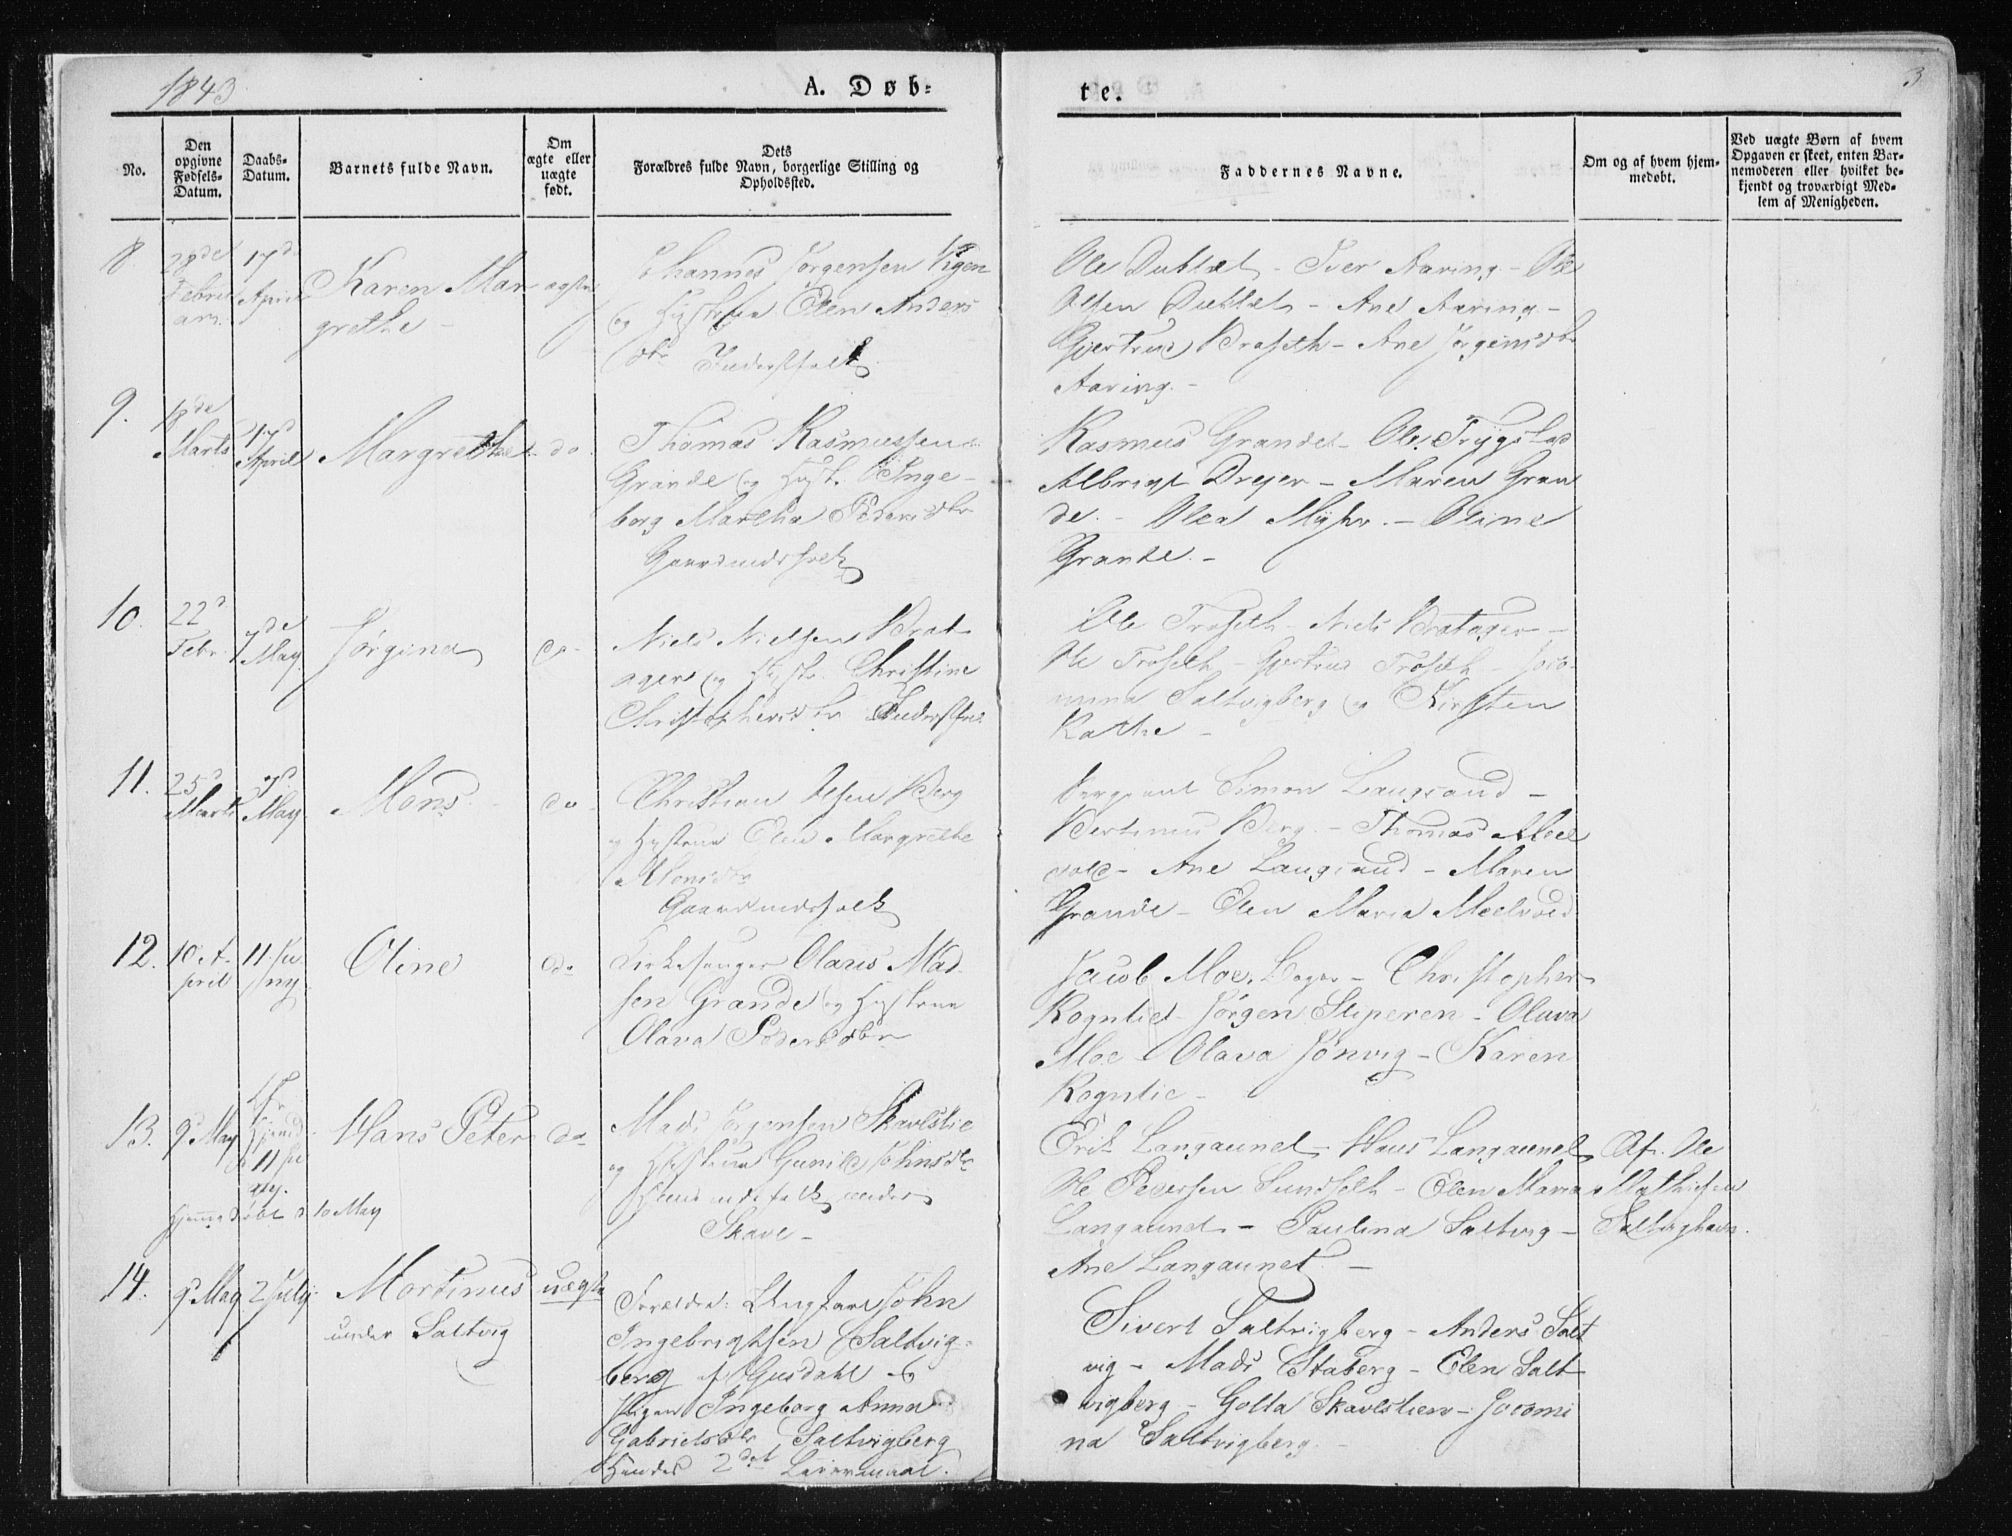 1843
A. Døb-
te.
3
No.
Den opgivne Fødsels-Datum.
Daabs-Datum.
Barnets fulde Navn.
Om ægte eller uægte født.
Dets Forældres fulde Navn, borgerlige Stilling og Opholdssted.
Faddernes Navne.
Om og af hvem hjem-medøbt.
Ved uægte Børn af hvem Opgaven er skeet, enten Bar-nemoderen eller hvilket be-kjendt og troværdigt Med-lem af Menigheden.
8. 28de Februarii 17d April Karen Mar
grethe
Johannes Jørgensen Vigen
og Hustrue Elen Anders
dtr Inderstfolk
Ole Iver Aaring - Ole
Olsen Ane Aaring -
Gjertrud Ane Jørgensdtr
Aaring -
9. 18de Marts 17d April Margrethe do
Thomas Rasmussen
Grande og Hust. Inge-
borg Martha Pedersdtr
Gaardmandsfolk
Rasmus Grande - Ole Trygstad
Albrigt Drejer - Maren Gran
de - Olea Myhr - Oline
Grande -
10. 22d Febr. 7de May Jørgina do
Niels Nielsen Brat
ager og Hustr. Christine
Christophersdtr Inderstfolk
Ole Troseth - Niels Bratager -
Ole Troseth - Gjertrud Troseth - Joro-
mina Saltvigberg og Kirsten
11. 25d Marts 7d May Mons do
Christian Olsen Berg
og Hustrue Elen Margrethe
Monsdtr
Gaardmandsfolk
Sergeant Simon Langsand -
Bertinus Berg - Thomas Meel
vold - Ane Langsand - Maren
Grande - Elen Maria Meelvold
12. 10 April 11 Juny Oline do
Kirkesanger Olaus Mad
sen Grande og Hustrue
Olava Pedersdtr
Jacob Moe, Christopher
Rognlie - Jørgen Sliperen - Olava
Moe - Olava Jønvig - Karen
Rognlie -
13. 9d May 11 Juny Hans Peter do
hjemmedøbt d 10 May
Mads Jørgensen Skavlslie
og Hustrue Gunild Johnsdtr
Huusmandsfolk under
Skave -
Erik Langaunet - Hans Langaunet
Ole Pedersen Sundseth - Elen Maria
Langaunet - Paulina Saltvig -
Ane Langaunet. -
Af Ole
Mathisen
14. 9d May 2 July Martinus uægte
under Saltvig
Forældre: Ungkarl John
Ingebrigtsen Saltvig-
berg af og
Pigen Ingeborg Anna
Gabrielsdtr Saltvigberg
Hendes 2det Leiermaal.
Sivert Saltvigberg - Anders Salt
vig - Mads Staberg - Elen Salt
vigberg - Golla - Joromi
na Saltvigberg. -